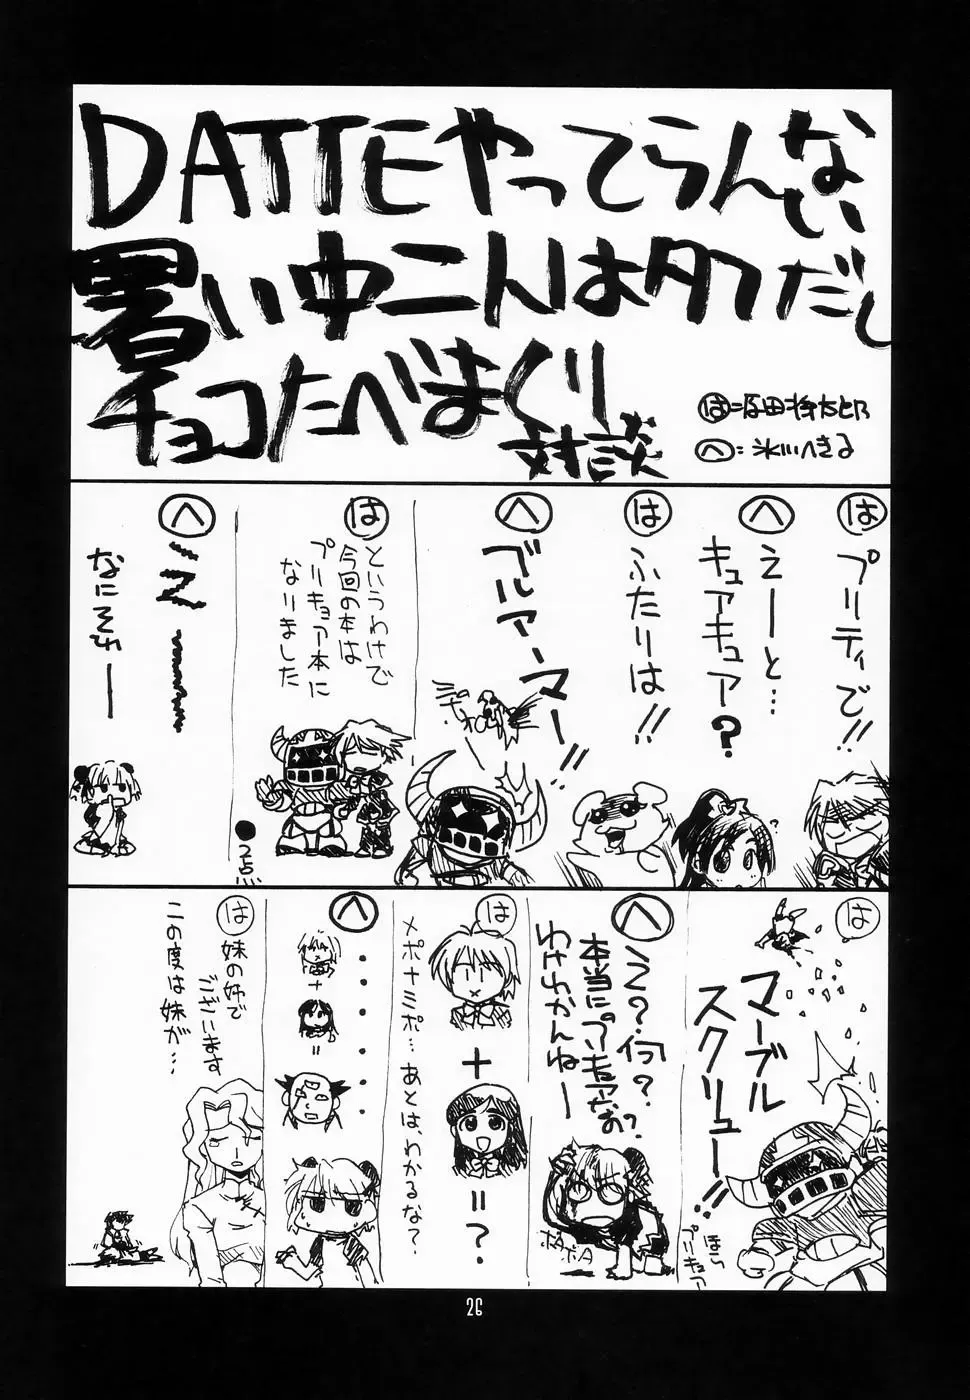 DATTEやってらんない
暑い中こんはタフだし
チョコたべまくり
対談
は=原田将太郎
へ:氷川へきる
は
プリティで!!
へ
えーと…
キュアキュア?
は
ふたりは!!
へ
ブルアーマー!!
は
というわけで
今回の本は
プリキュア本に
なりました
●2点
へ
えー
なにそれー
は
マーブル
スクリュー!!
ほら
プリキュア
へ
え?何?
本当にプリキュアなの?
わけわかんねー
ポタ
ポタ
は
+
=?
メポナミポ…あとは、わかるな?
へ
・・・・・・・・
+
=
は
妹の姉で
ございます
この度は妹が…
26